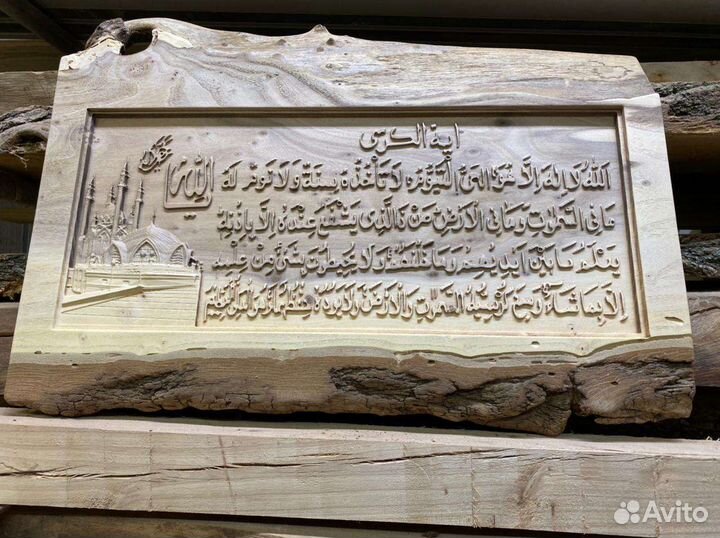 اية الكرسى
محمد
الله
الله لا اله الا هو الحي القيوم لا تأخذه سنة ولا نوم له
مافي السموت ومافي الارض من ذا الذي يشفع عنده الا باذنه
يعلم ما بين ايديهم وما خلفهم ولا يحيطون بشئ من علمه
الا بما شاء وسع كرسيه السموات والارض ولا يوده حفظهما وهو
Avito